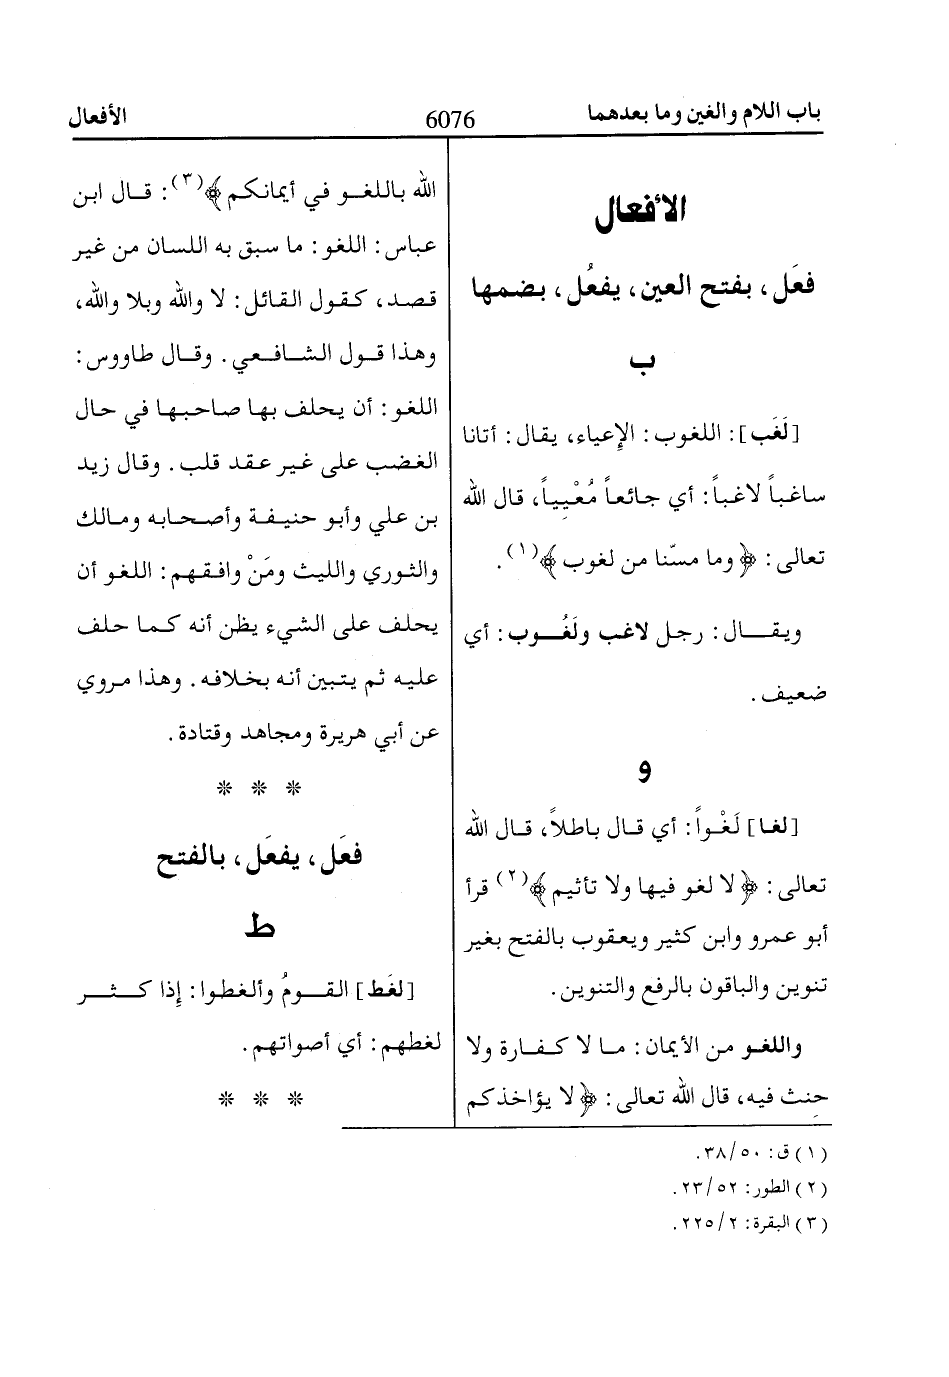 باب اللام والغين وما بعدهما
6076
الأفعال
الأفعال
فعَل، بفتح العين، يفعُل، بضمها
ب
[لَغَب]: اللغوب: الإعياء، يقال: أتانا
ساغباً لاغباً: أي جائعاً مُعْيِياً، قال الله
تعالى: ﴿وما مسّنا من لغوب﴾(١).
ويقال: رجل لاغب ولَغُوب: أي
ضعيف.
و
[لغا] لَغْواً: أي قال باطلاً، قال الله
تعالى: ﴿لا لغو فيها ولا تأثيم﴾(٢) قرأ
أبو عمرو وابن كثير ويعقوب بالفتح بغير
تنوين والباقون بالرفع والتنوين.
واللغو من الأيمان: ما لا كفارة ولا
حِنث فيه، قال الله تعالى: ﴿لا يؤاخذكم
الله باللغو في أيمانكم﴾(٣): قال ابن
عباس: اللغو: ما سبق به اللسان من غير
قصد، كقول القائل: لا والله وبلا والله،
وهذا قول الشافعي. وقال طاووس:
اللغو: أن يحلف بها صاحبها في حال
الغضب على غير عقد قلب. وقال زيد
بن علي وأبو حنيفة وأصحابه ومالك
والثوري والليث ومَنْ وافقهم: اللغو أن
يحلف على الشيء يظن أنه كما حلف
عليه ثم يتبين أنه بخلافه. وهذا مروي
عن أبي هريرة ومجاهد وقتادة.
* * *
فعَل، يفعَل، بالفتح
ط
[لغَط] القومُ وألغطوا: إذا كثر
لغطهم: أي أصواتهم.
* * *
(١) ق: ٥٠/ ٣٨.
(٢) الطور: ٥٢/ ٢٣.
(٣) البقرة: ٢/ ٢٢٥.